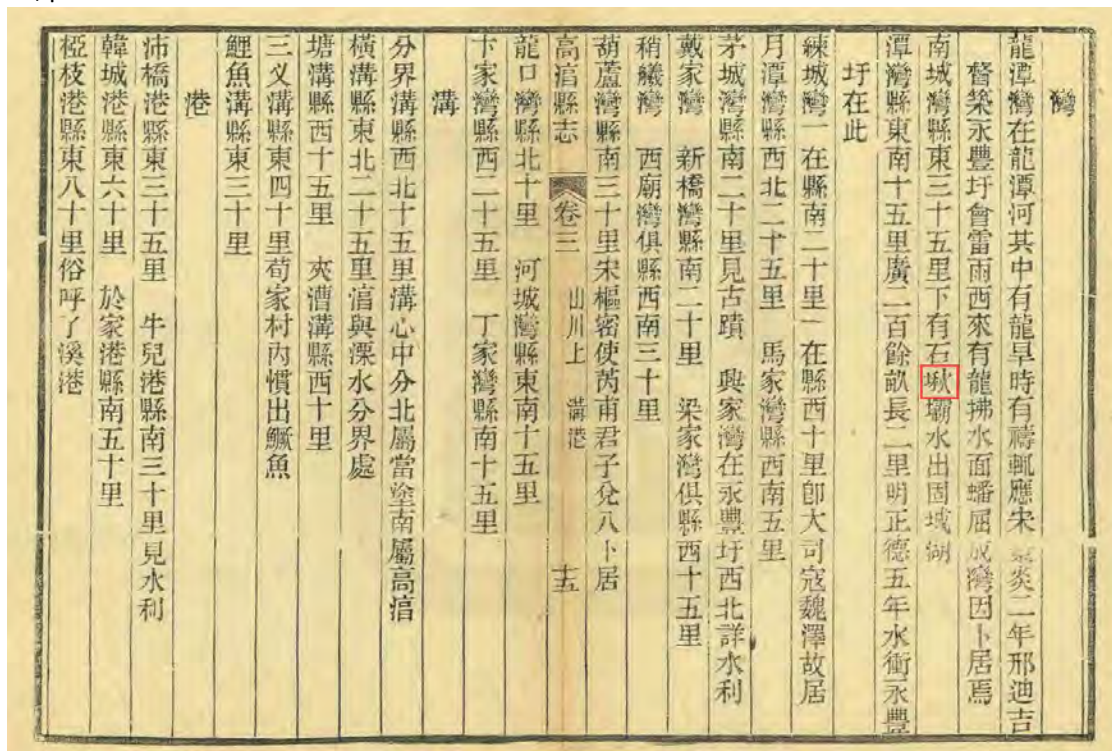 灣
龍潭灣在龍潭河其中有龍旱時有禱輒應宋炎二年邢迪吉
督築永豐圩會雷雨西來有龍拂水面蟠屈成灣因卜居焉
南城灣縣東三十五里下有石壩水出固城湖
潭灣縣東南十五里廣二百餘畝長二里明正德五年水衝永豐
圩在此
練城灣一在縣南二十里一在縣西十里卽大司寇魏澤故居
月潭灣縣西北二十五里　馬家灣縣西南五里
茅城灣縣南二十里見古蹟　與家灣在永豐圩西北詳水利
戴家灣　新橋灣縣南二十里　梁家灣俱縣西十五里
稍艤灣　西廟灣俱縣西南三十里
葫蘆灣縣南三十里宋樞密使芮甫君子兊八卜居
高淳縣志　卷三　山川上　溝港　十五
龍口灣縣北十里　河城灣縣東南十五里
卞家灣縣西二十五里　丁家灣縣南十五里
溝
分界溝縣西北十五里溝心中分北屬當塗南屬高湻
橫溝縣東北二十五里湻與溧水分界處
塘溝縣西十五里　夾漕溝縣西十里
三义溝縣東四十里荀家村內慣出鱖魚
鯉魚溝縣東三十里
港
沛橋港縣東三十五里　牛兒港縣南三十里見水利
韓城港縣東六十里　於家港縣南五十里
椏枝港縣東八十里俗呼了溪港